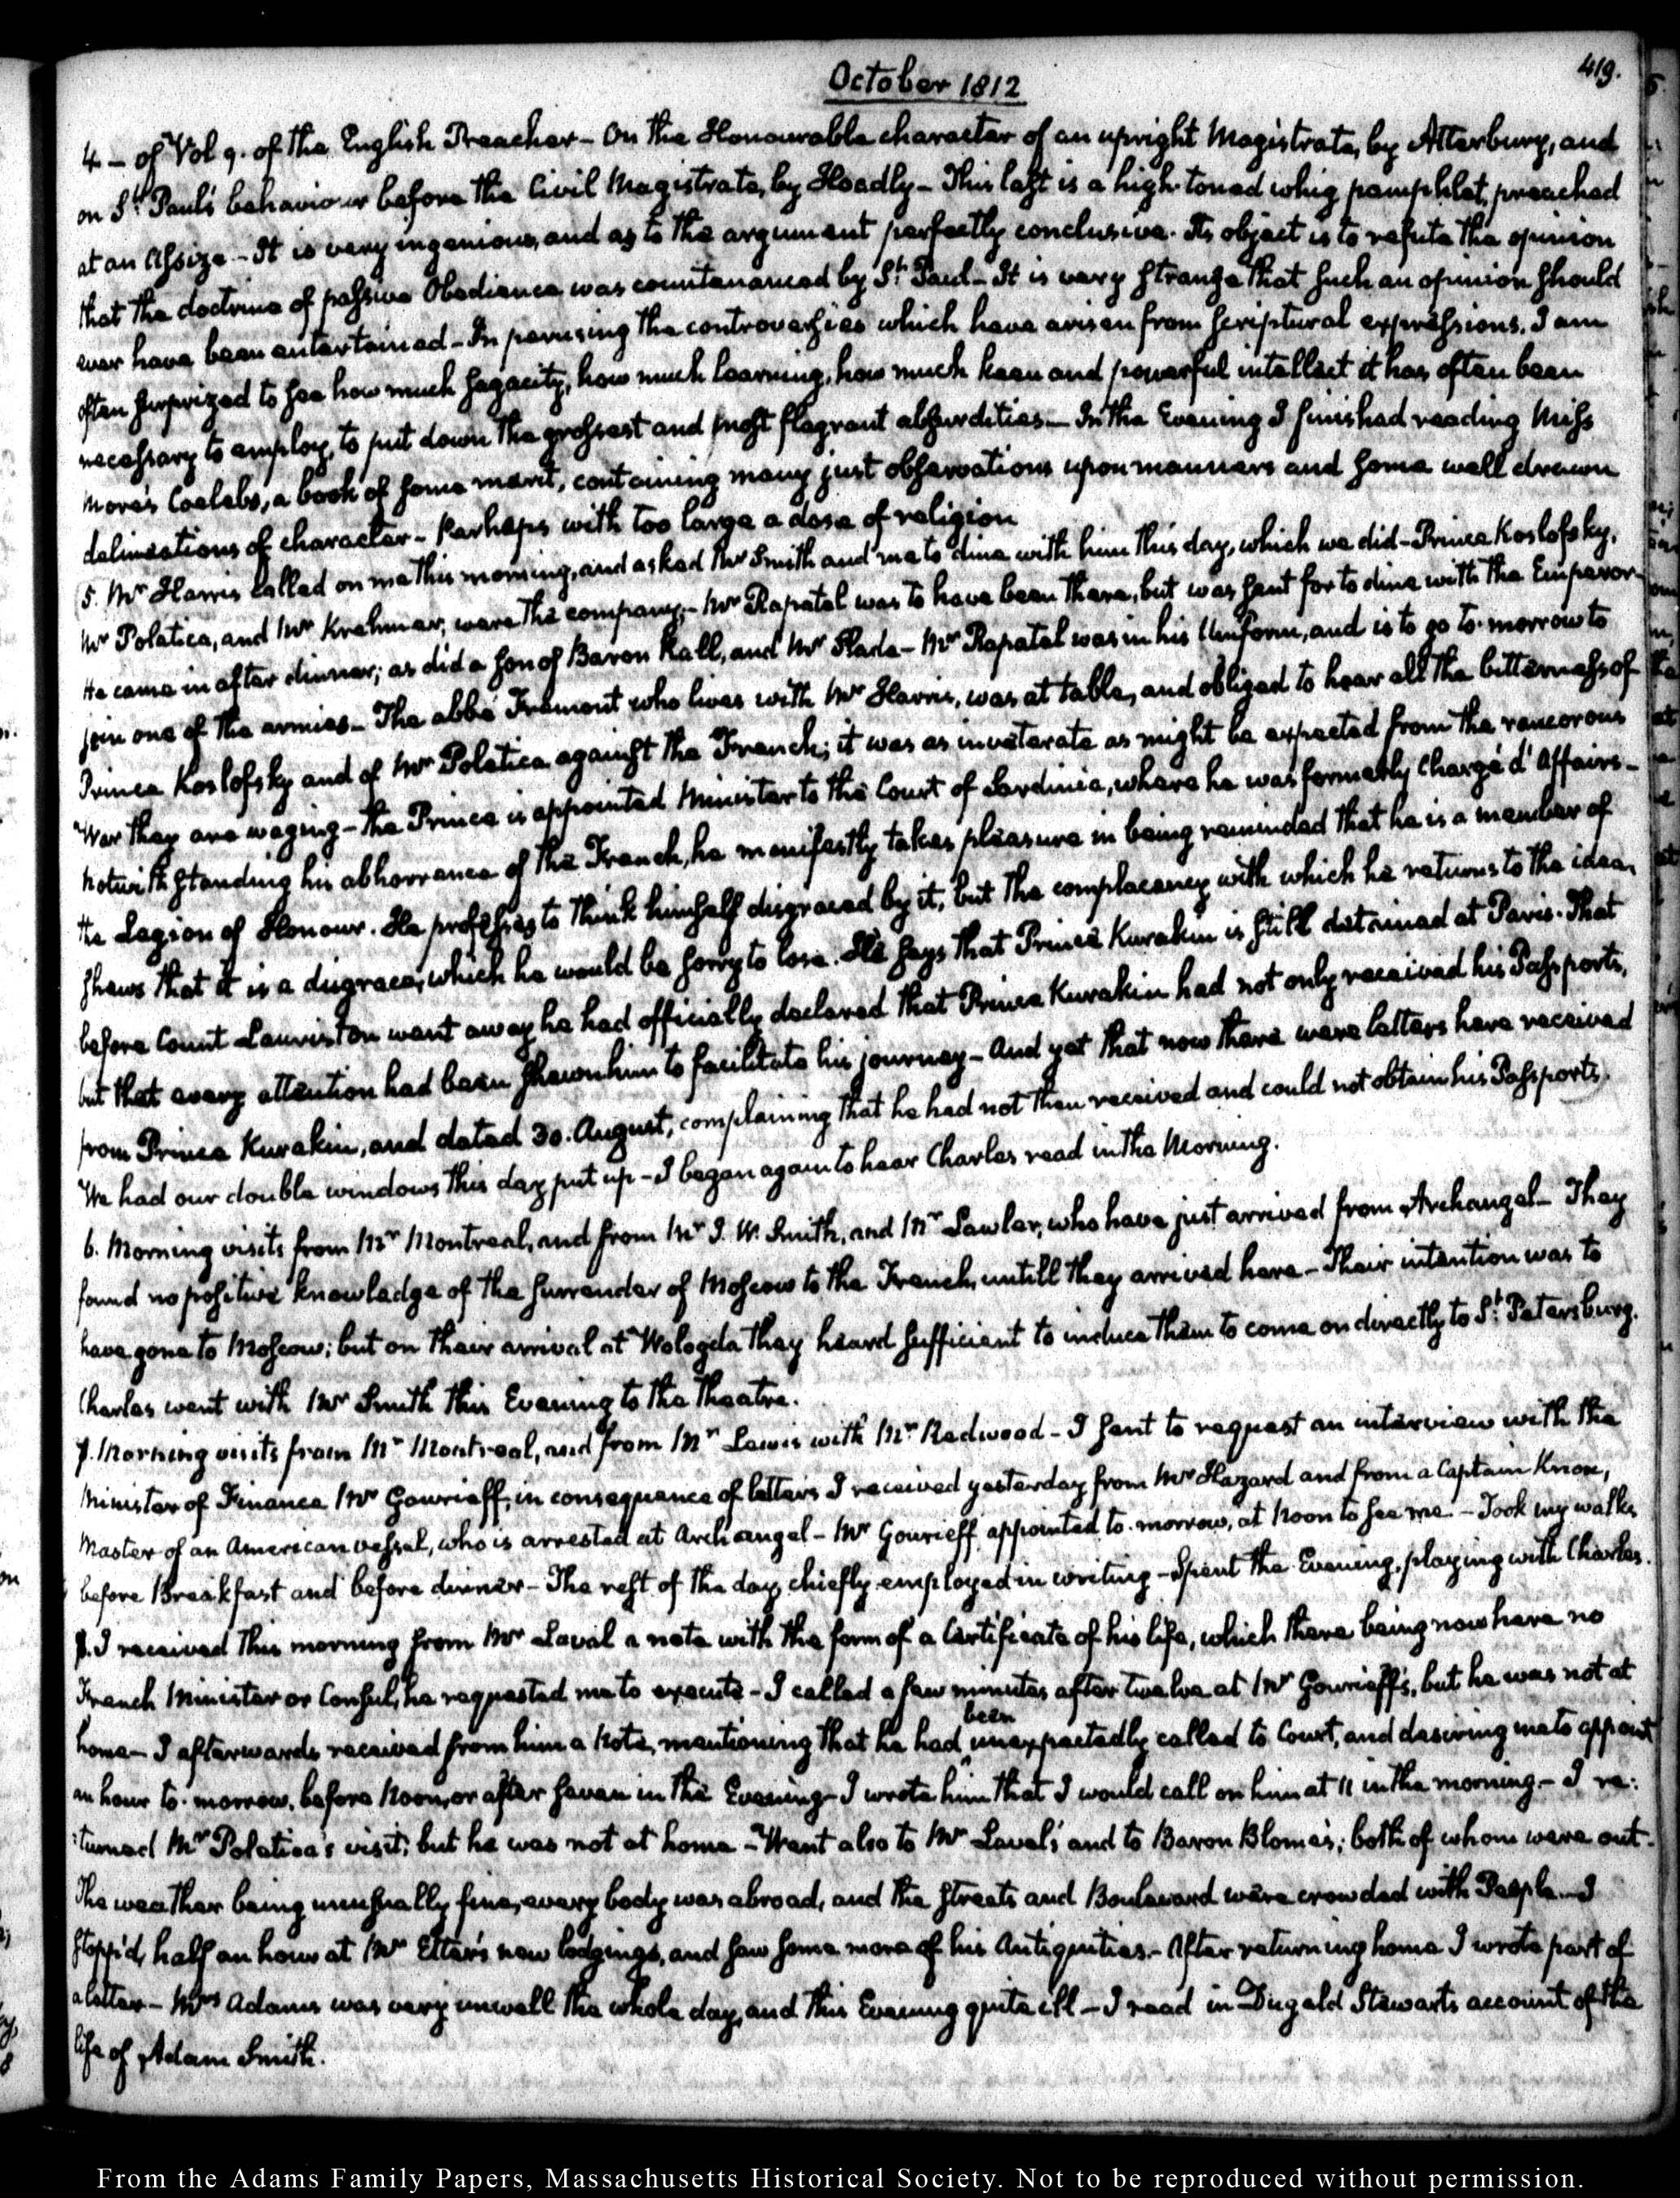 419.
October 1812
4 – of Vol 9. of the English Preacher – On the Honourable character of an upright Magistrate, by Atterbury, and
on St. Paul's behaviour before the Civil Magistrate, by Hoadly – This last is a high-toned whig pamphlet, preached
at an Assize – It is very ingenious, and as to the argument perfectly conclusive. Its object is to refute the opinion
that the doctrine of passive Obedience was countenanced by St. Paul – It is very strange that such an opinion should
ever have been entertained – In perusing the controversies which have arisen from scriptural expressions, I am
often surprized to see how much sagacity, how much learning, how much keen and powerful intellect it has often been
necessary to employ, to put down the grossest and most flagrant absurdities – In the Evening I finished reading Miss
More's Coelebs, a book of some merit, containing many just observations upon manners and some well drawn
delineations of character – Perhaps with too large a dose of religion
5. Mr Harris called on me this morning, and asked Mr Smith and me to dine with him this day, which we did – Prince Koslofsky,
Mr Poletica, and Mr Krehmer, were the company – Mr Rapatel was to have been there, but was sent for to dine with the Emperor –
He came in after dinner; as did a son of Baron Rall, and Mr Slade – Mr Rapatel was in his Uniform, and is to go to-morrow to
join one of the armies – The abbé Fremont who lives with Mr Harris, was at table, and obliged to hear all the bitterness of
Prince Koslofsky and of Mr Poletica against the French; it was as inveterate as might be expected from the rancorous
War they are waging – the Prince is appointed Minister to the Court of Sardinia, where he was formerly Chargé d'Affairs –
Notwithstanding his abhorrence of the French, he manifestly takes pleasure in being reminded that he is a member of
the Legion of Honour. He professes to think himself disgraced by it, but the complacency with which he returns to the idea,
shews that it is a disgrace, which he would be sorry to lose. He says that Prince Kurakin is still detained at Paris. That
before Count Lauriston went away he had officially declared that Prince Kurakin had not only received his Passports,
but that every attention had been shewn him to facilitate his journey – And yet that now there were letters have received
from Prince Kurakin, and dated 30. August, complaining that he had not then received and could not obtain his Passports.
We had our double windows this day put up – I began again to hear Charles read in the Morning.
6. Morning visits from Mr Montreal, and from Mr I. W. Smith, and Mr Lawler, who have just arrived from Archangel – They
found no positive knowledge of the surrender of Moscow to the French, untill they arrived here – Their intention was to
have gone to Moscow; but on their arrival at Wologda they heard sufficient to induce them to come on directly to St. Petersburg.
Charles went with Mr Smith this Evening to the Theatre.
7. Morning visits from Mr Montreal, and from Mr Lewis with Mr Redwood – I sent to request an interview with the
Minister of Finance Mr Gourieff, in consequence of letters I received yesterday from Mr Hazard and from a Captain Knox,
Master of an American vessel, who is arrested at Archangel – Mr Gourieff appointed to-morrow, at Noon to see me – Took my walks,
before Breakfast and before dinner – The rest of the day, chiefly employed in writing – Spent the Evening, playing with Charles.
8. I received this morning from Mr Laval a note with the form of a Certificate of his life, which there being now here no
French Minister or Consul, he requested me to execute – I called a few minutes after twelve at Mr Gourieff's, but he was not at
home – I afterwards received from him a Note, mentioning that he had been unexpectedly called to Court, and desiring me to appoint
an hour to-morrow, before Noon, or after seven in the Evening – I wrote him that I would call on him at 11 in the morning – I re:
:turned Mr Poletica's visit; but he was not at home – Went also to Mr Laval's and to Baron Blome's; both of whom were out.
The weather being unusually fine, every body was abroad, and the streets and Boulevard were crowded with People – I
stopp'd half an hour at Mr Etter's new lodgings, and saw some more of his Antiquities. – After returning home I wrote part of
a letter – Mrs Adams was very unwell the whole day, and this Evening quite ill – I read in Dugald Stewarts account of the
life of Adam Smith.
From the Adams Family Papers, Massachusetts Historical Society. Not to be reproduced without permission.